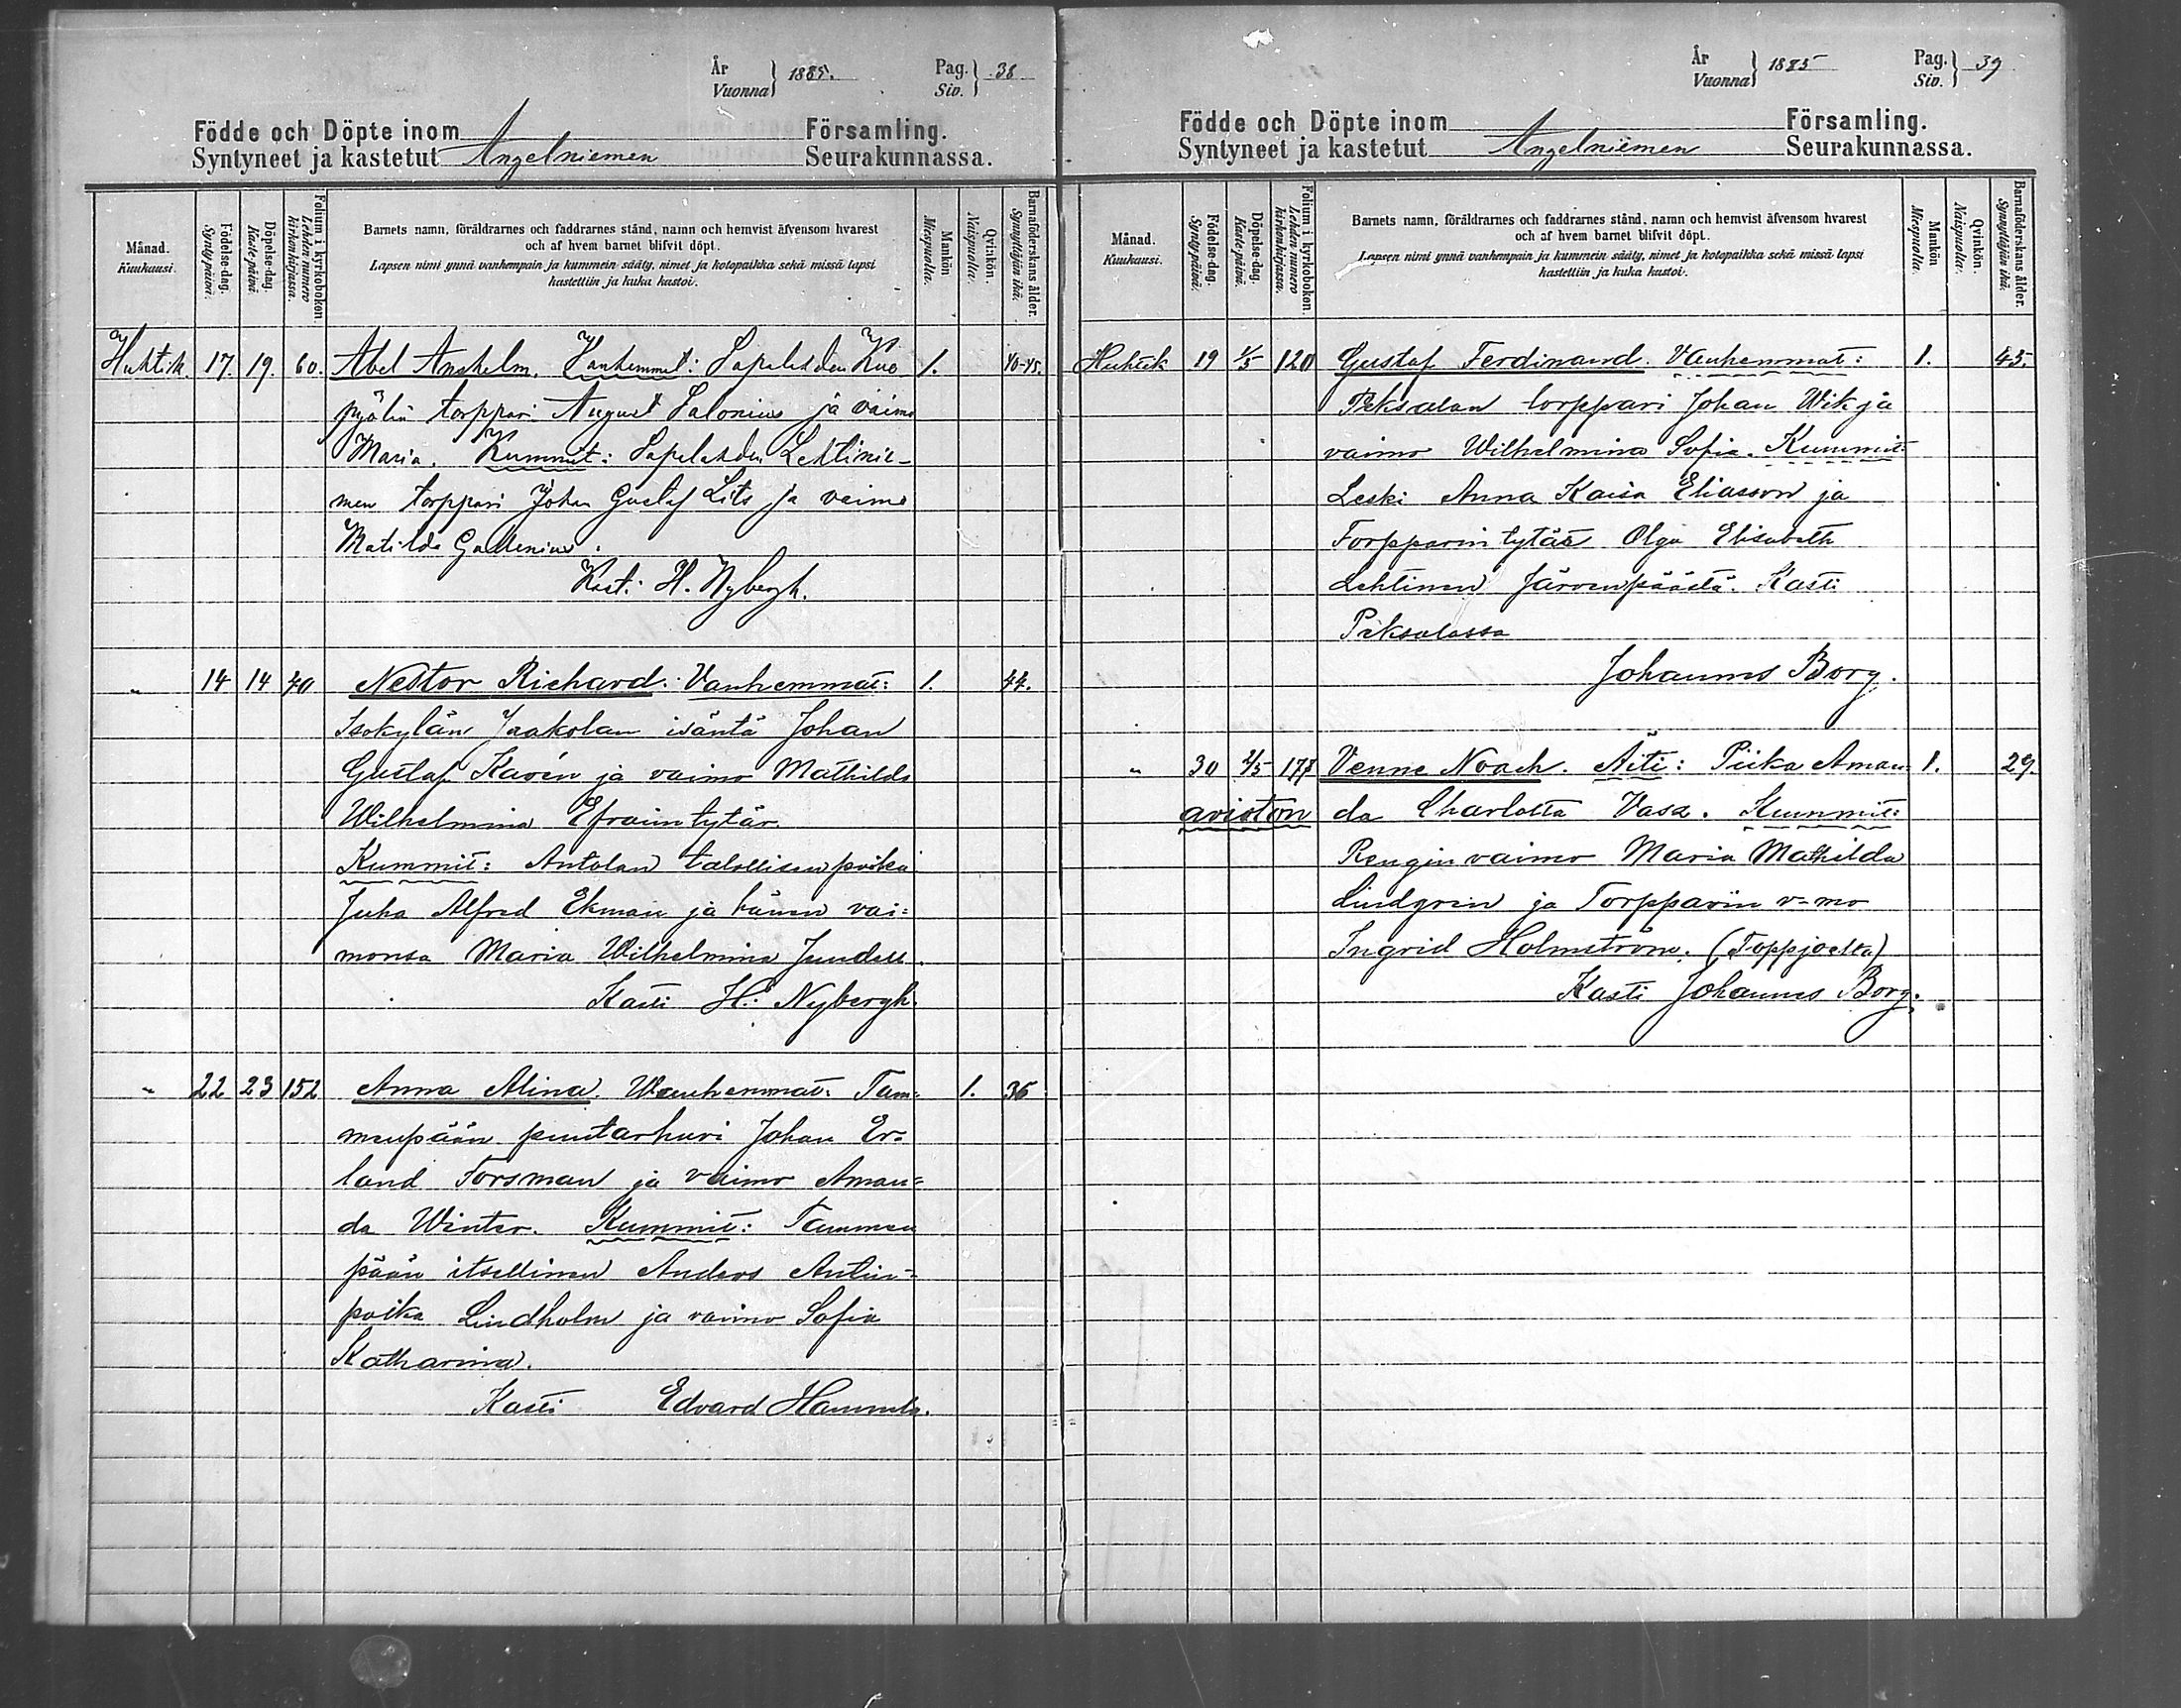 År
Vuonna } 1885.
Pag.
Siv. } 38
Födde och Döpte inom Församling.
Syntyneet ja kastetut Angelniemen Seurakunnassa.
Månad.
Kuukausi.
Födelse-dag.
Syntypäivä.
Döpelse-dag.
Kaste-päivä.
Folium i kyrkobokon.
Lehden numero
kirkonkirjassa.
Barnets namn, föräldrarnes och faddrarnes stånd, namn och hemvist äfvensom hvarest
och af hvem barnet blifvit döpt.
Lapsen nimi ynnä vanhempain ja kummein sääty, nimet ja kotopaikka sekä missä lapsi
kastettiin ja kuka kastoi.
Mankön
Miespuolta.
Qvinkön.
Naispuolta.
Barnaföderskans ålder.
Synnyttäjän ikä.
Huhtik. 17. 19. 60. Abel Anshelm. Vanhemmat: Sapalahden 1. 40-45.
torppari August Salonius ja vaimo
Maria. Kummit: Sapalahden Lehtinie-
men torppari Johan Gustaf Lits ja vaimo
Matilda
Kast. H. Nybergh.
" 14 14 40 Nestor Richard. Vanhemmat: 1. 44.
Isokylän Jaakolan isäntä Johan
Gustaf Kavén ja vaimo Mathilda
Wilhelmina Efraimtytär.
Kummit: Antolan talollisen poika
Juha Alfred Ekman ja hänen vai=
monsa Maria Wilhelmina
Kasti H. Nybergh.
" 22 23 152 Anna Alina. Wanhemmat: Tam= 1. 36
menpään puutarhuri Johan Er=
land Forsman ja vaimo Aman=
da Winter. Kummit: Tammen
pään itsellinen Anders Antin=
poika Lindholm ja vaimo Sofia
Katharina.
Kasti Edvard
År
Vuonna } 1885
Pag.
Siv. } 39
Födde och Döpte inom Församling.
Syntyneet ja kastetut Angelniemen Seurakunnassa.
Månad.
Kuukausi.
Födelse-dag.
Syntypäivä.
Döpelse-dag.
Kaste-päivä.
Folium i kyrkobokon.
Lehden numero
kirkonkirjassa.
Barnets namn, föräldrarnes och faddrarnes stånd, namn och hemvist äfvensom hvarest
och af hvem barnet blifvit döpt.
Lapsen nimi ynnä vanhempain ja kummein sääty, nimet ja kotopaikka sekä missä lapsi
kastettiin ja kuka kastoi.
Mankön
Miespuolta.
Qvinkön.
Naispuolta.
Barnaföderskans ålder.
Synnyttäjän ikä.
Huhtik 19 1/5 120 Gustaf Ferdinand. Vanhemmat: 1. 45.
Peksalan torppari Johan Wik ja
vaimo Wilhelmina Sofia. Kummit:
Leski Anna Kaisa Eliasson ja
Torpparin tytär Olga Elisabeth
Lehtinen Järvenpäästä. Kasti
Peksalassa
Johannes Borg.
" 30 2/5 177 Venne Noach. Äiti: Piika Aman= 1. 29.
avioton da Charlotta Vasa. Kummit:
Rengin vaimo Maria Mathilda
Lindgren ja Torpparin v=mo
Ingrid Holmström. (Toppjoelta)
Kasti Johannes Borg.